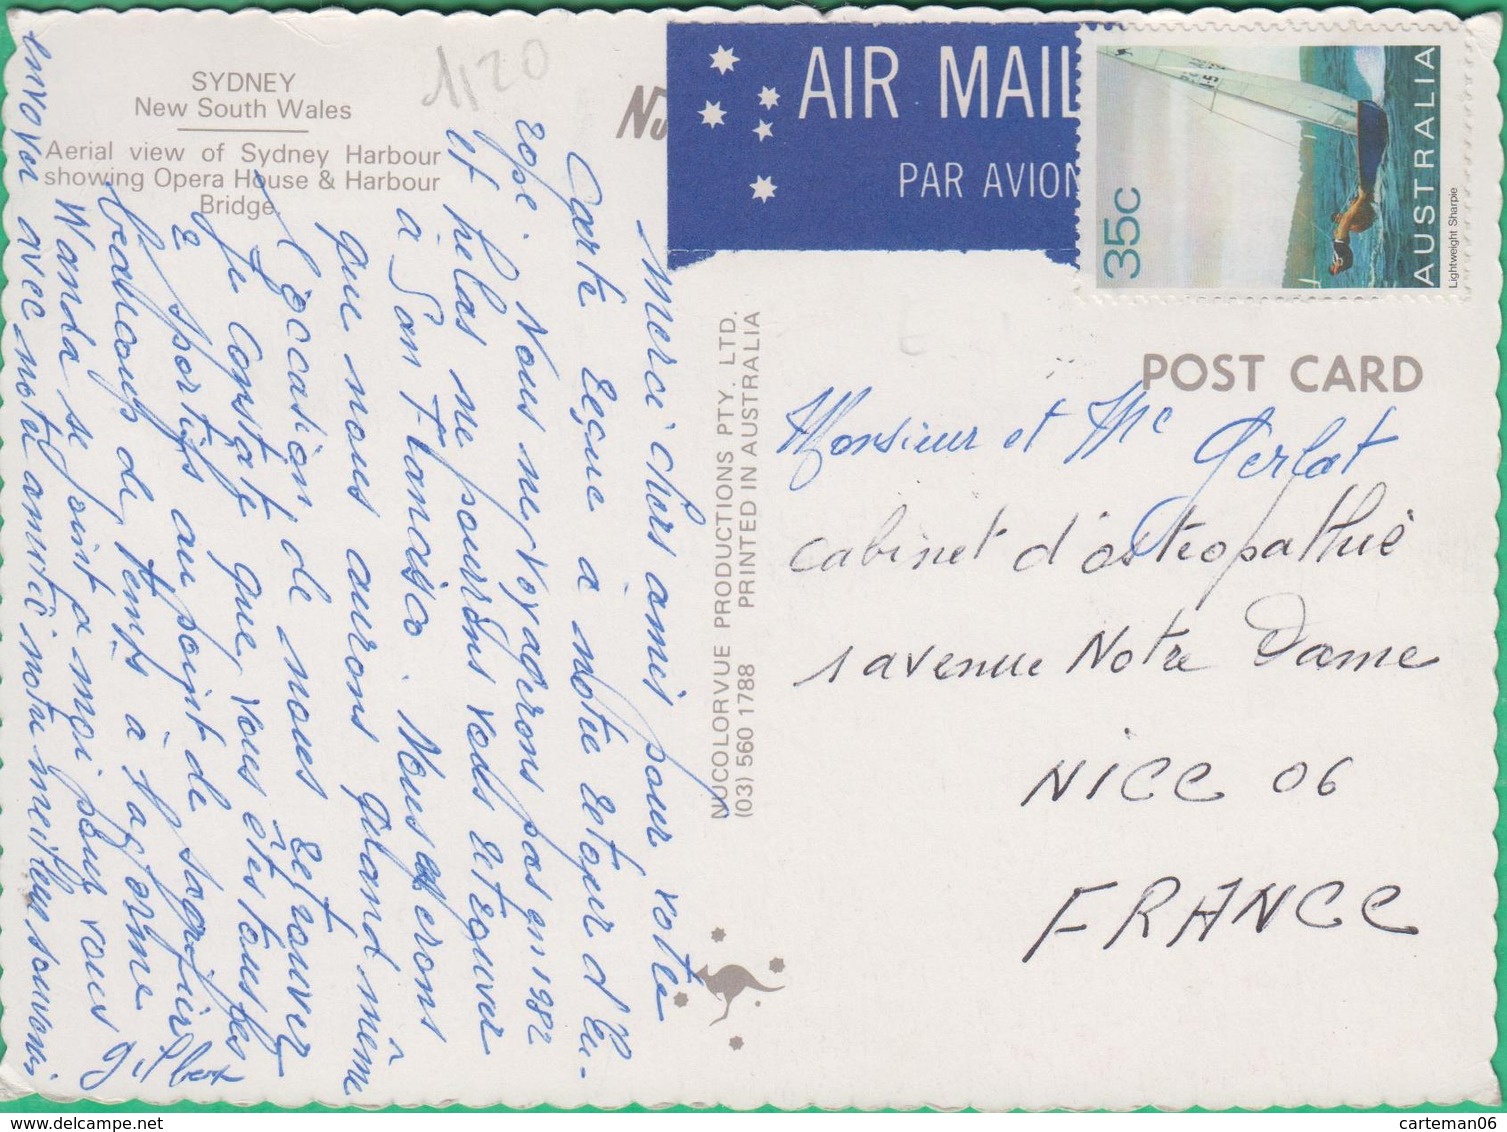 SYDNEY
New South Wales
Aerial view of Sydney Harbour
showing Opera House & Harbour
Bridge
1,20
AIR MAIL
PAR AVION
35c
AUSTRALIA
Lightweight Sharpie
POST CARD
NUCOLORVUE PRODUCTIONS PTY. LTD.
(03) 560 1788 PRINTED IN AUSTRALIA
Merci chers amis pour votre
Carte reçue à notre retour d'Eu-
rope. Nous ne voyagerons pas en 1982
et hélas ne pourrons vous retrouver
à San Francisco. Nous serons
que nous aurons quand même
l'occasion de nous retrouver
Je constate que vous êtes tous les
2 sportifs au point de sacrifier
beaucoup de temps à la forme
Wanda se joint à moi pour vous
envoyer avec notre amitié notre meilleur souvenir
Gilbert
Monsieur et Me Gerlat
cabinet d'osteopathie
1 avenue Notre Dame
NICE 06
FRANCE
carteman06